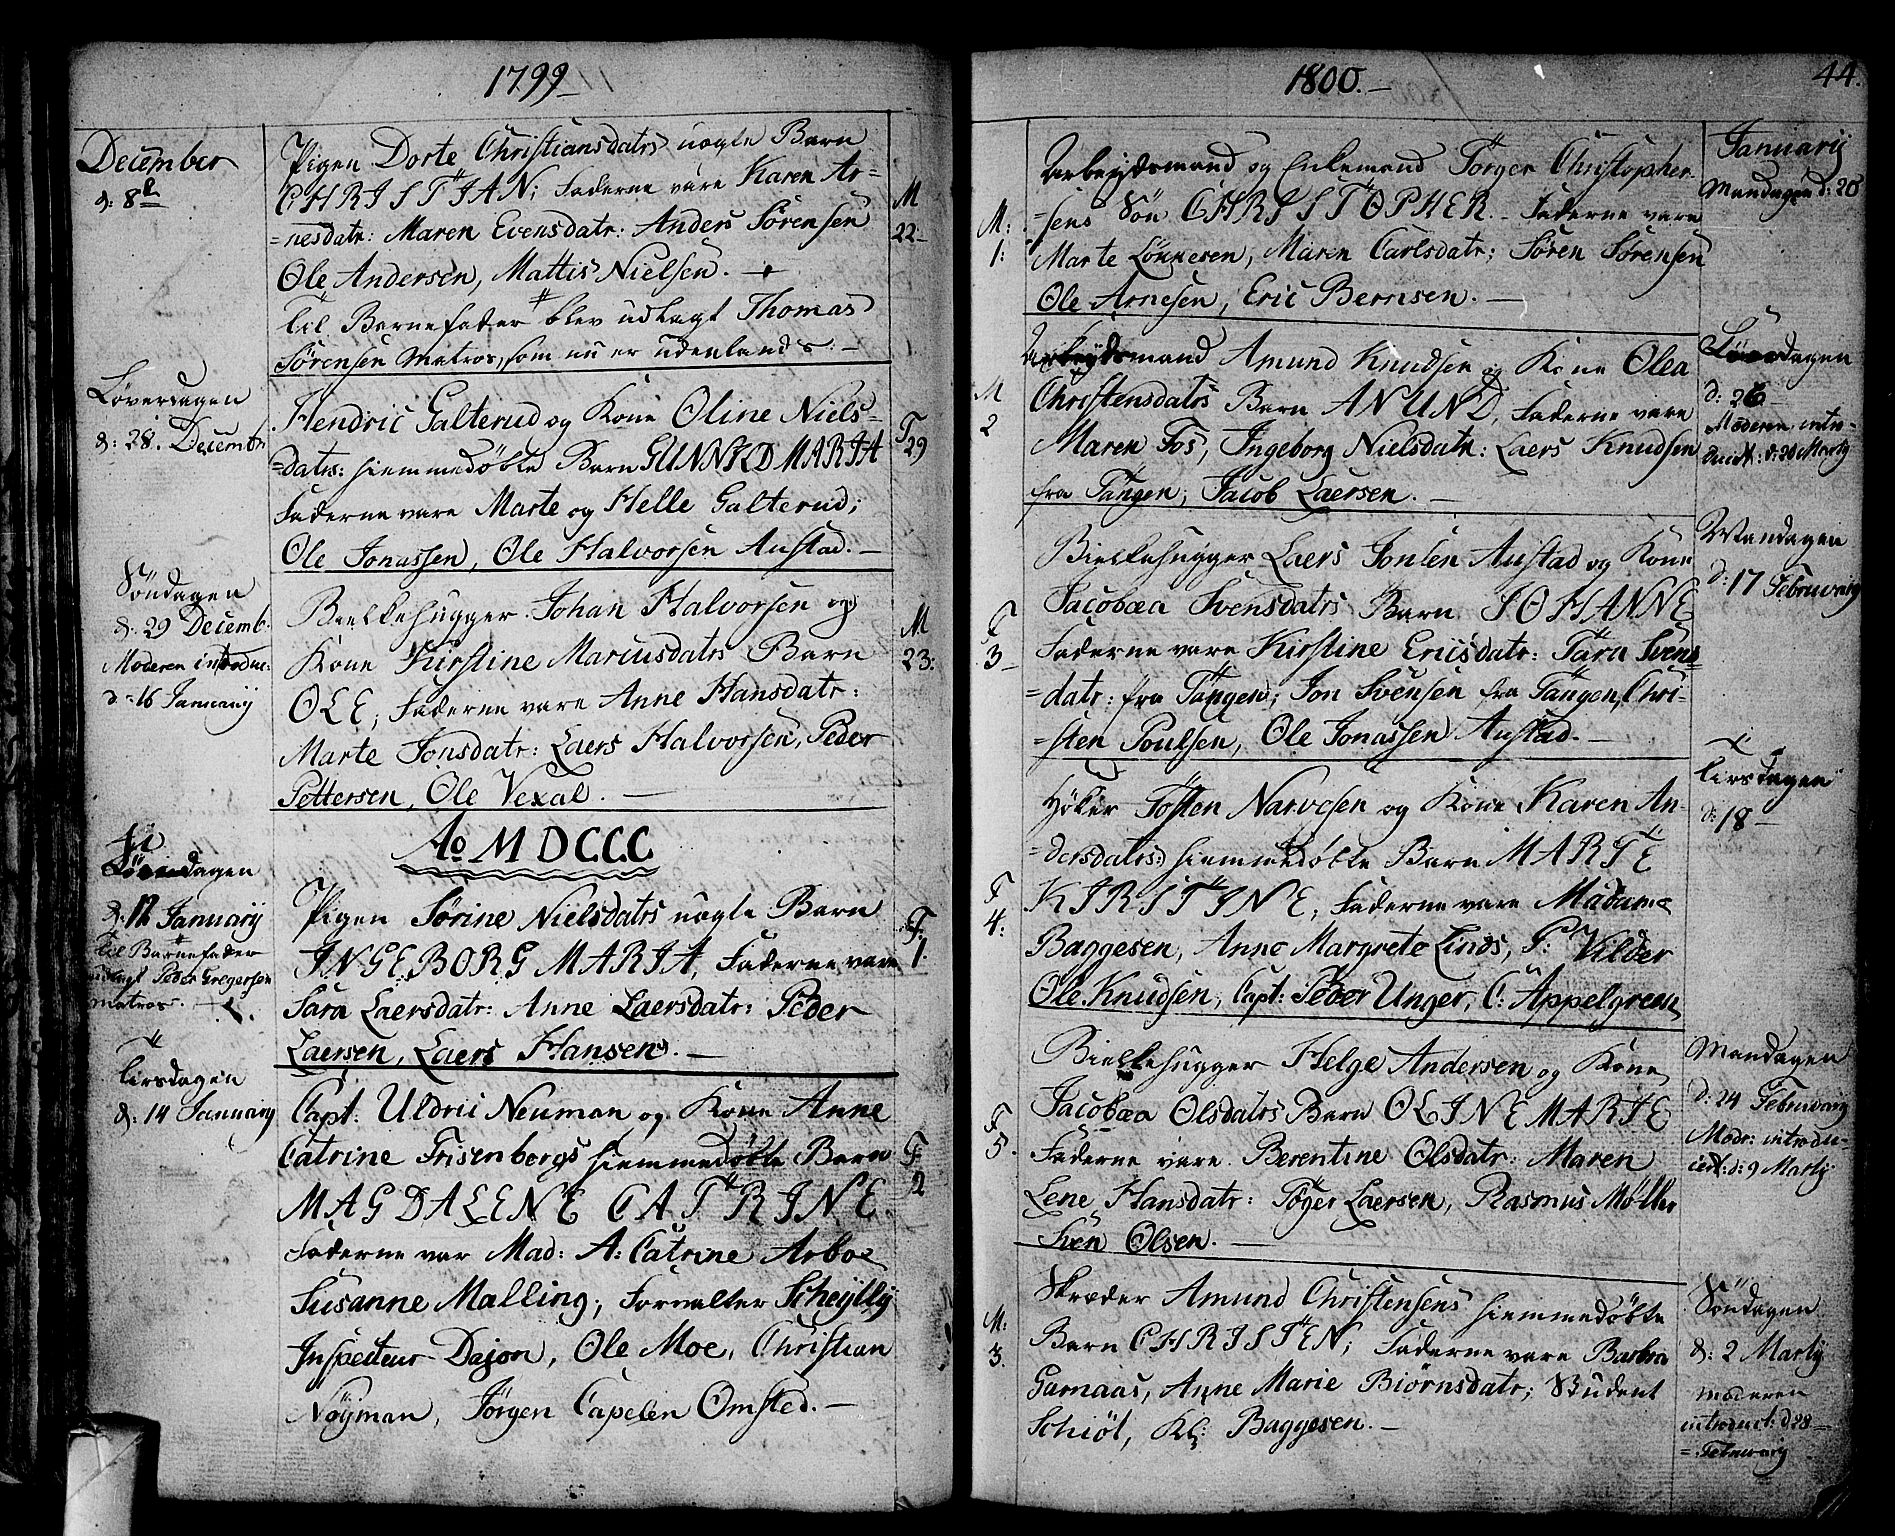 1799
December
d: 8de
Pigen Dorte Christiansdatrs uægte Barn
CHRISTIAN; Fadderne vare Karen Ar-
=nesdatr: Maren Evensdatr: Anders Sørensen
Ole Andersen, Mattis Nielsen.
Til Barnefader blev udlagt Thomas
Sørensen Matros, som nu er udenlands.
M
22
Løverdagen
d: 28. Decembr
Hendric Galterud og Kone Oline Niels-
=datrs: hiemmedøbte Barn GUNNILD MARIA
Fadderne vare Marte og Helle Galterud;
Ole Jonassen, Ole Halvorsen Austad.
F
29
Søndagen
d: 29 Decemb.
Moderen introduc:
d: 16 Januarij
Bielkehugger Johan Halvorsen og
Kone Kirstine Mariusdatrs Barn
OLE; Fadderne vare Anne Hansdatr:
Marte Jonsdatr: Laers Halvorsen, Peder
Pettersen, Ole Vexal.
M
23:
Ao MDCCC
dagen
d: 12 Januarij
Til Barnefader
udlagt Peder Gregersen
Matros.
Pigen Sørine Nielsdatrs uægte Barn
INGEBORG MARIA, Fadderne vare
Sara Laersdatr: Anne Laersdatr: Peder
Laersen, Laers Hansen.
F:
1.
Tirsdagen
d: 14 Januarij
Capt: Uldric Neuman og Kone Anne
Catrine Frisenbergs hiemmedøbte Barn
MAGDALENE CATRINE.
Fadderne var Mad: A: Catrine Arboe
Susanne Malling; Forvalter Scheylly
Inspecteur Dajon, Ole Moe, Christian
Nøyman, Jørgen Capelen Omsted.
F:
2
1800.
44.
Januarij
Mandagen d: 20
M:
1:
Arbejdsmand og Enkemand Törger Christopher-
=sens Søn CHRISTOPHER. Fadderne vare
Marte Lönnesen, Maren Carlsdatr; Søren Sørensen
Ole Arnesen, Eric Bernsen.
M
2
dagen
d: 26
Moderen intro-
ducit: d: 20 Martij
Arbejdsmand Amund Knudsen og Kone Olea
Christensdatrs Barn ANUND, Fadderne vare
Maren Fos, Ingeborg Nielsdatr: Laers Knudsen
fra Tangen; Jacob Laersen.
F
3
Mandagen
d: 17 Februarij
Bielkehugger Laers Jonsen Austad og Kone
Jacobæa Svensdatrs Barn JOHANNE
Fadderne vare Kirstine Ericsdatr: Tara Svens
=datr: fra Tangen; Jon Svensen fra Tangen, Chri-
=sten Poulsen, Ole Jonassen Austad.
F
4:
Tirsdagen
d: 18
Høker Tosten Narvesen og Kone Karen An-
=dersdatrs: hiemmedøbte Barn MARTE
KIRISTINE; Fadderne vare Madame
Baggesen, Anne Margrete Linds, P: Vilder
Ole Knudsen, Capt: Peder Unger, C: Appelgreen
F
5.
Mandagen
d: 24 Februarij
Modr: introdu-
icit: d: 9 Martij
Bielkehugger Helge Andersen og Kone
Jacobæa Olsdatrs Barn OLINE MARIE
Fadderne vare Berentine Olsdatr: Maren
Lene Hansdatr: Tøger Laersen, Rasmus Møller
Sven Olsen.
M:
3.
Søndagen
d: 2 Martij
Moderen
introduct: d 28
=Februarij
Skræder Amund Christensens hiemmedøbte
Barn CHRISTEN; Fadderne vare Barbra
Garnaas, Anne Marie Biørnsdatr; Student
Schiöt, Kl: Baggesen.